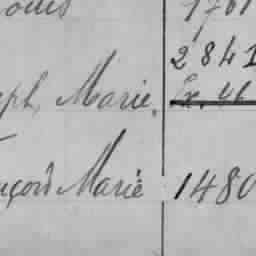 ouis 1761
2841
eph, Marie.
nçois Marie 1480